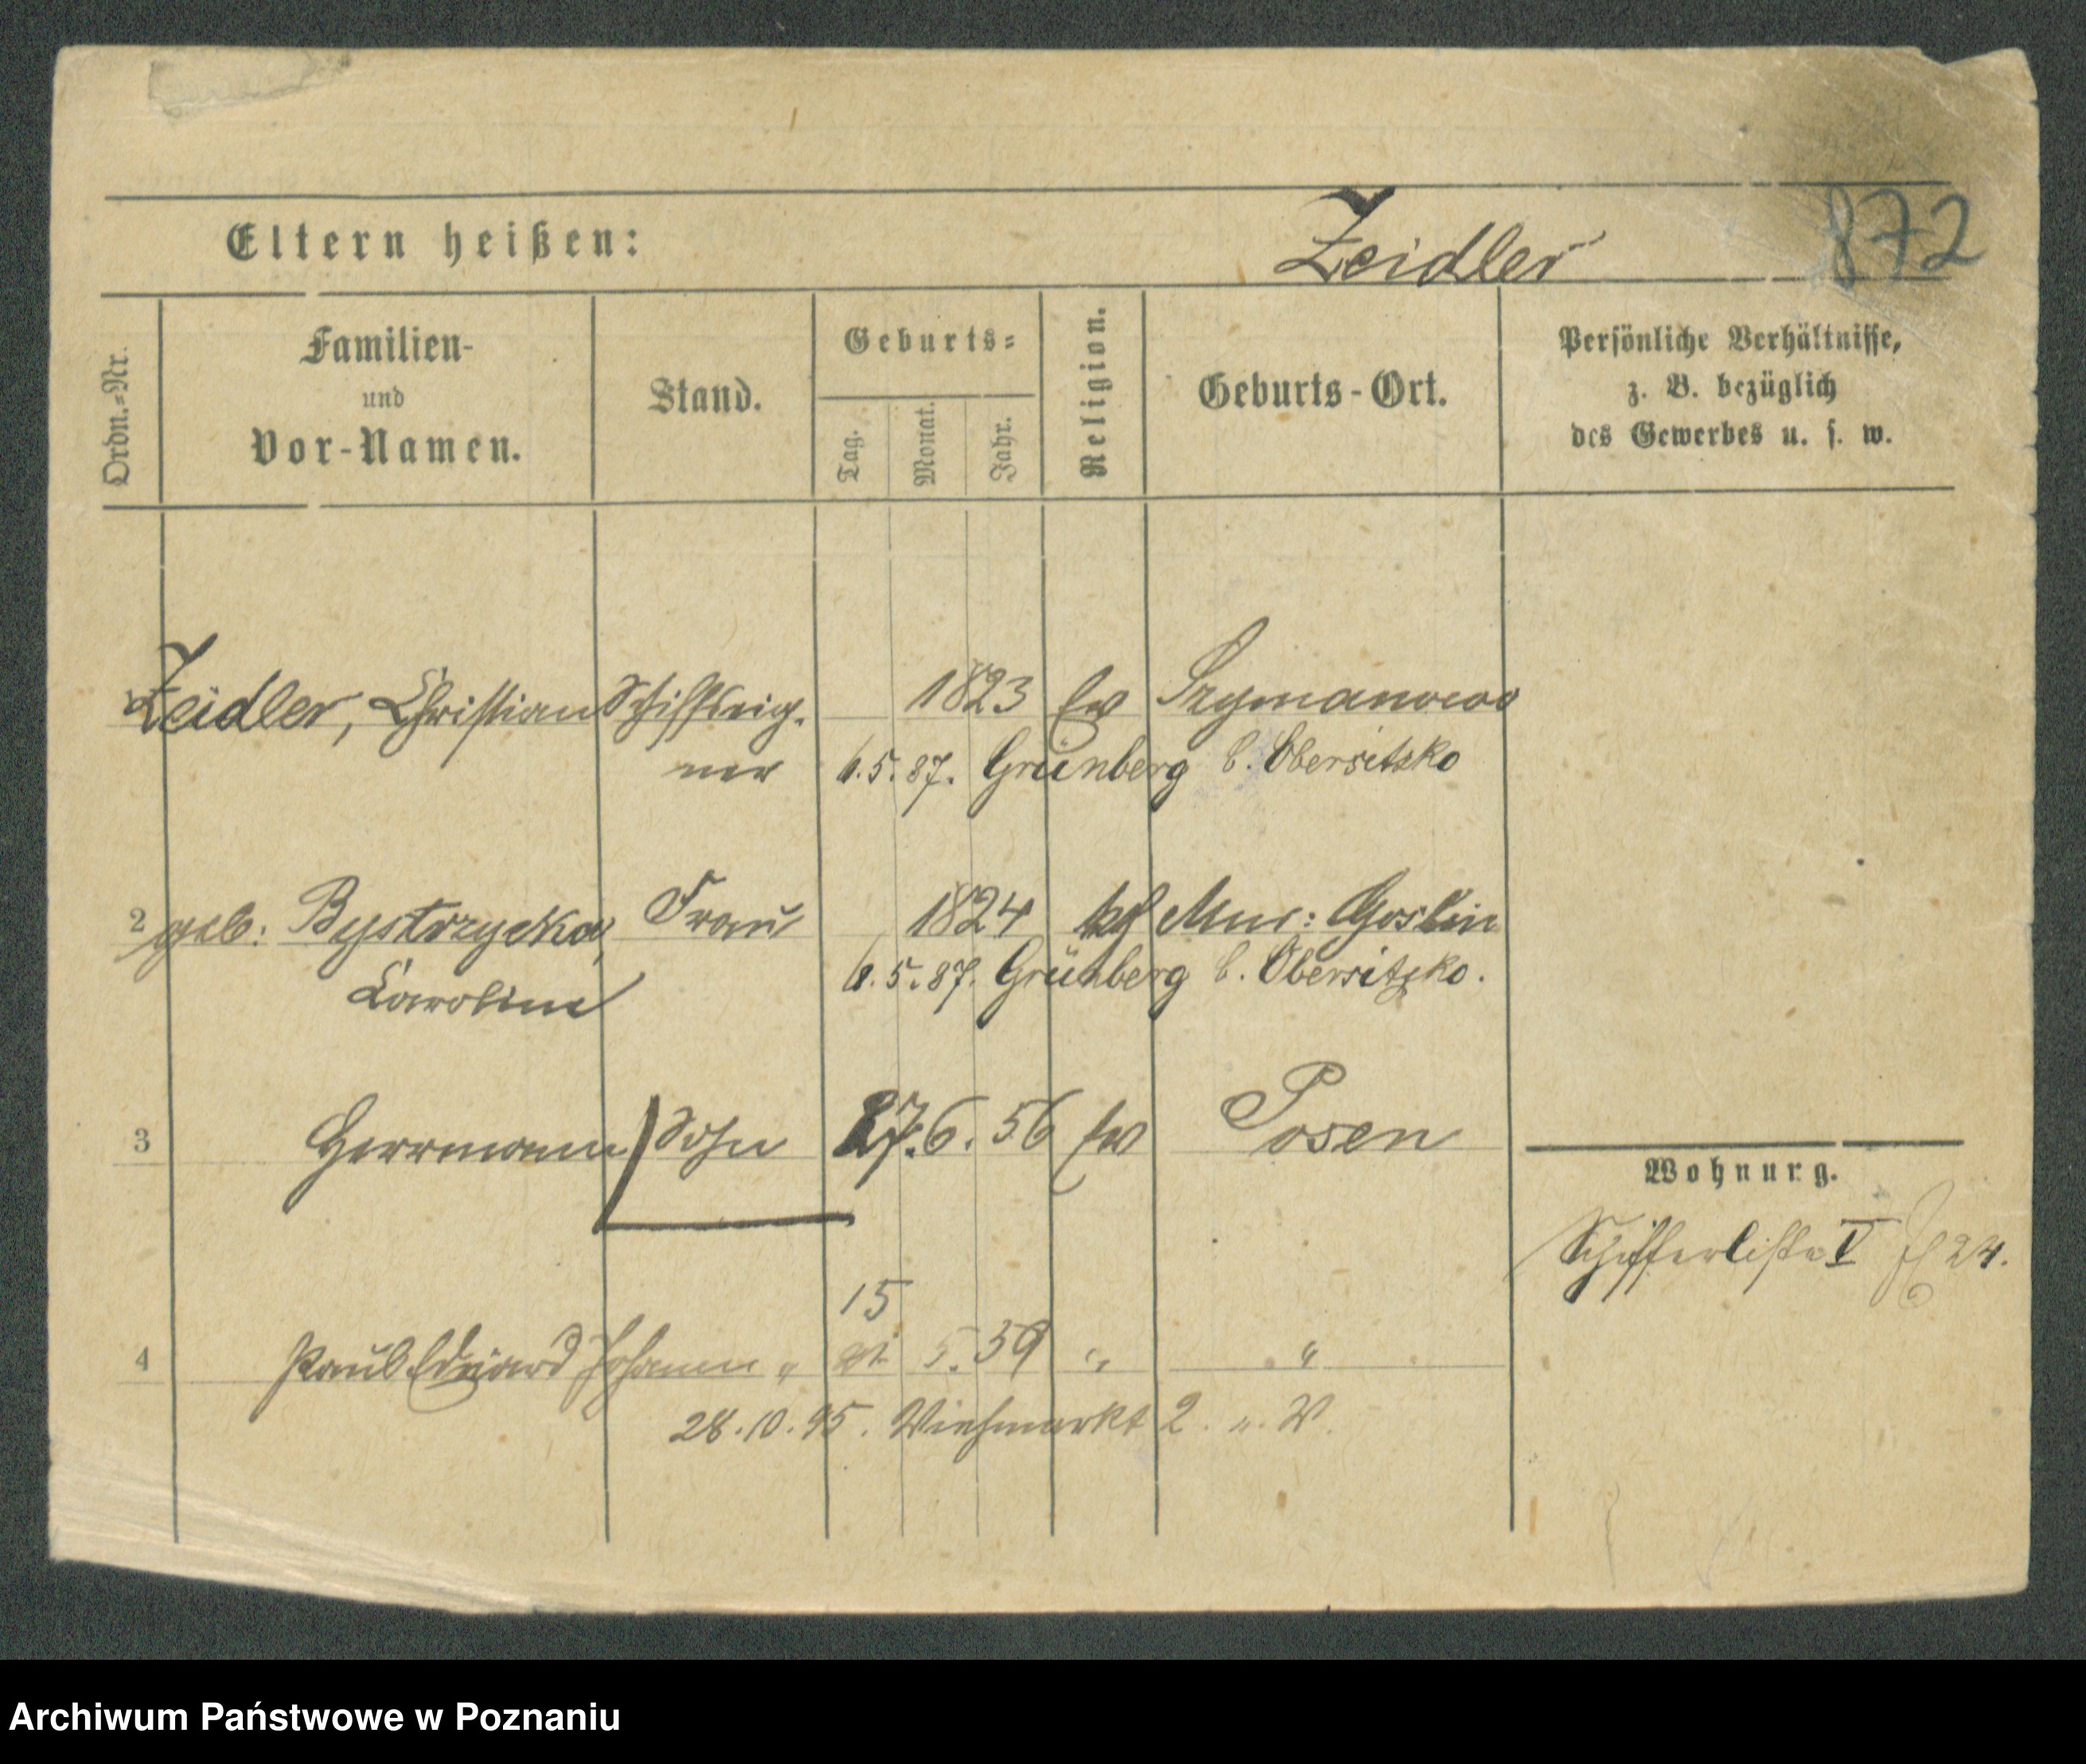 Eltern heißen: Zeidler 872
Ordn.=Nr. Familien- und Vor-Namen. Stand. Geburts= Tag. Monat. Jahr. Religion. Geburts-Ort. Persönliche Verhältnisse, z. B. bezüglich des Gewerbes u. s. w.
Zeidler, Christian Schiffseig- 1823 ev Szymanowo
ner 6.5.87. Grünberg b. Obersitzko
2 geb: Bystrzycka, Frau 1824 kt Mur: Goslin
Caroline 6.5.87. Grünberg b. Obersitzko.
3 Herrmann Sohn 27.6.56 ev Posen
Wohnung.
Schifferliste V 24.
15
4 Paul Eduard Johann " 5.59 " "
28.10.95. Viehmarkt 2. W.
Archiwum Państwowe w Poznaniu